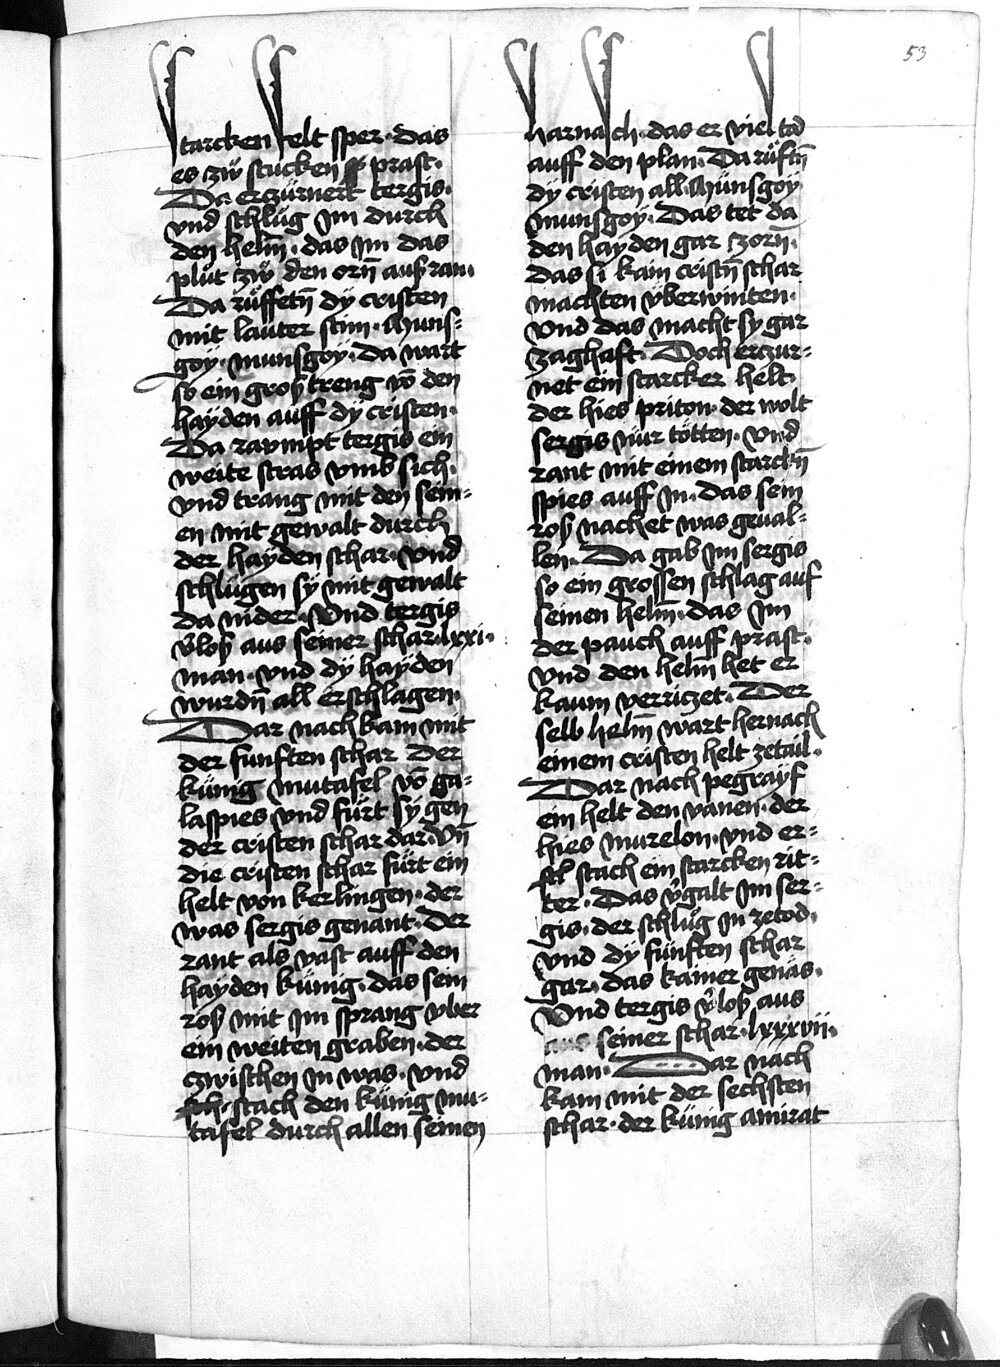 53
starcken felt sper · das
es zw̎ stucken prast ·
Da erczürnett tergis ·
vnd schlüg Jm durch
den helm̄ · das Jm das
plůt zw̎ den orn̄ aus ran ·
Da rüffetn̄ dy cristen
mit lauter stim · Muns=
goy · munsgoÿ · Da wart
so ein groß treng võ den
haÿden auff dy cristen ·
Da raumpt tergis ein
weite stras vmb sich ·
vnd trang mit den sein=
en mit gewalt durch
der haÿden schar · vnd
schlügen sÿ mit gewalt
da nider · Vnd tergis
v̾loß aus seiner schar · lxxi ·
man · vnd dÿ haÿden
wurdn̄ all erschlagen ·
Dar nach kam mit
der funften schar Der
künig mutafel võ ga=
laspies vnd fürt sÿ gen
der cristen schar dar · Vn̄
die cristen schar fürt ein
helt von kerlingen · der
was sergis genant · Der
rant als vast auff den
haÿden künig · das sein
roß mit Jm sprang vber
ein weiten graben · der
czwischen in was · vnd
stach den künig mu=
tafel durch allen seinen
harnach · das er viel tod
auff den plan · Da rüftn̄
dÿ cristen all · Münsgoÿ
munsgoÿ · Das tet da
den haÿden gar zorn̄ ·
das si kain cristn̄ schar
machten vberwinten ·
Vnd das macht sy gar
zaghaft · Doch erczur=
net ein starcker helt ·
der hies priton · der wolt
sergis nür tötten · vnd
rant mit einem starckn̄
spies auff Jn · das sein
roß nachet was geual=
len · Da gab Jm sergis
so ein grossen schlag auf
seinen helm̄ · das Jm
der pauch auff prast ·
vnd den helm̄ het er
kaum verriczet · Der
selb helm̄ wart hernach
einem cristen helt zetail ·
Dar nach pegraÿf
ein helt den vanen · der
hies murelon · vnd er=
stach ein starcken rit=
ter · Das v̾galt Jm ser=
gis · der schlüg Jn zetod ·
vnd dÿ fünften schar
gar · das kainer genäs ·
Vnd tergis v̾loß aus
seiner schar · lxxxvii ·
man · Dar nach
kam mit der sechsten
schar · der künig amirat